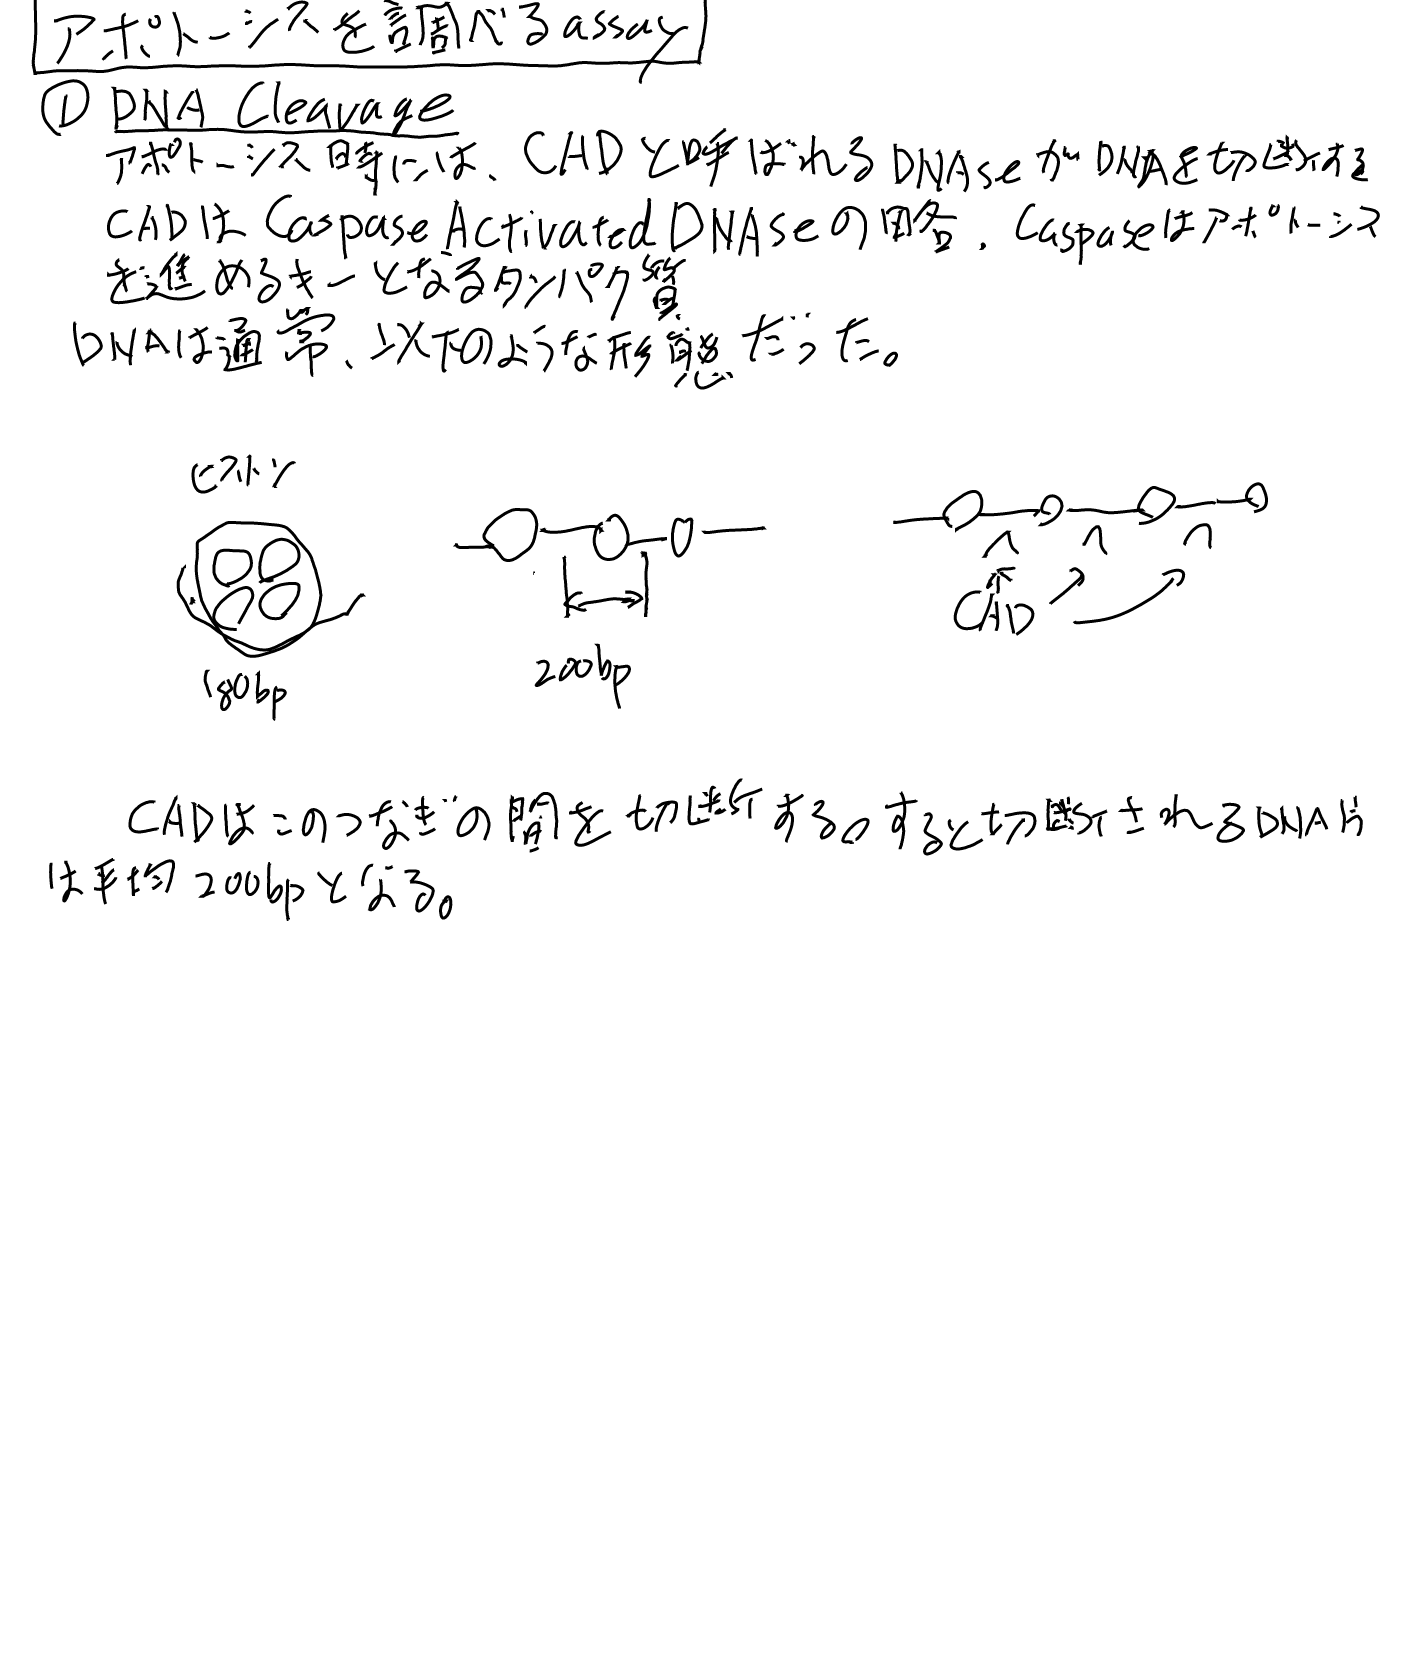 アポトーシスを調べるassay
① DNA Cleavage
アポトーシス時には、CADと呼ばれるDNAseがDNAを切断する
CADはCaspase Activated DNAseの略、Caspaseはアポトーシス
を進めるキーとなるタンパク質
DNAは通常、以下のような形態だった。
ヒストン
180bp
200bp
CAD
CADはこのつなぎの間を切断する。すると切断されるDNA片
は平均200bpとなる。